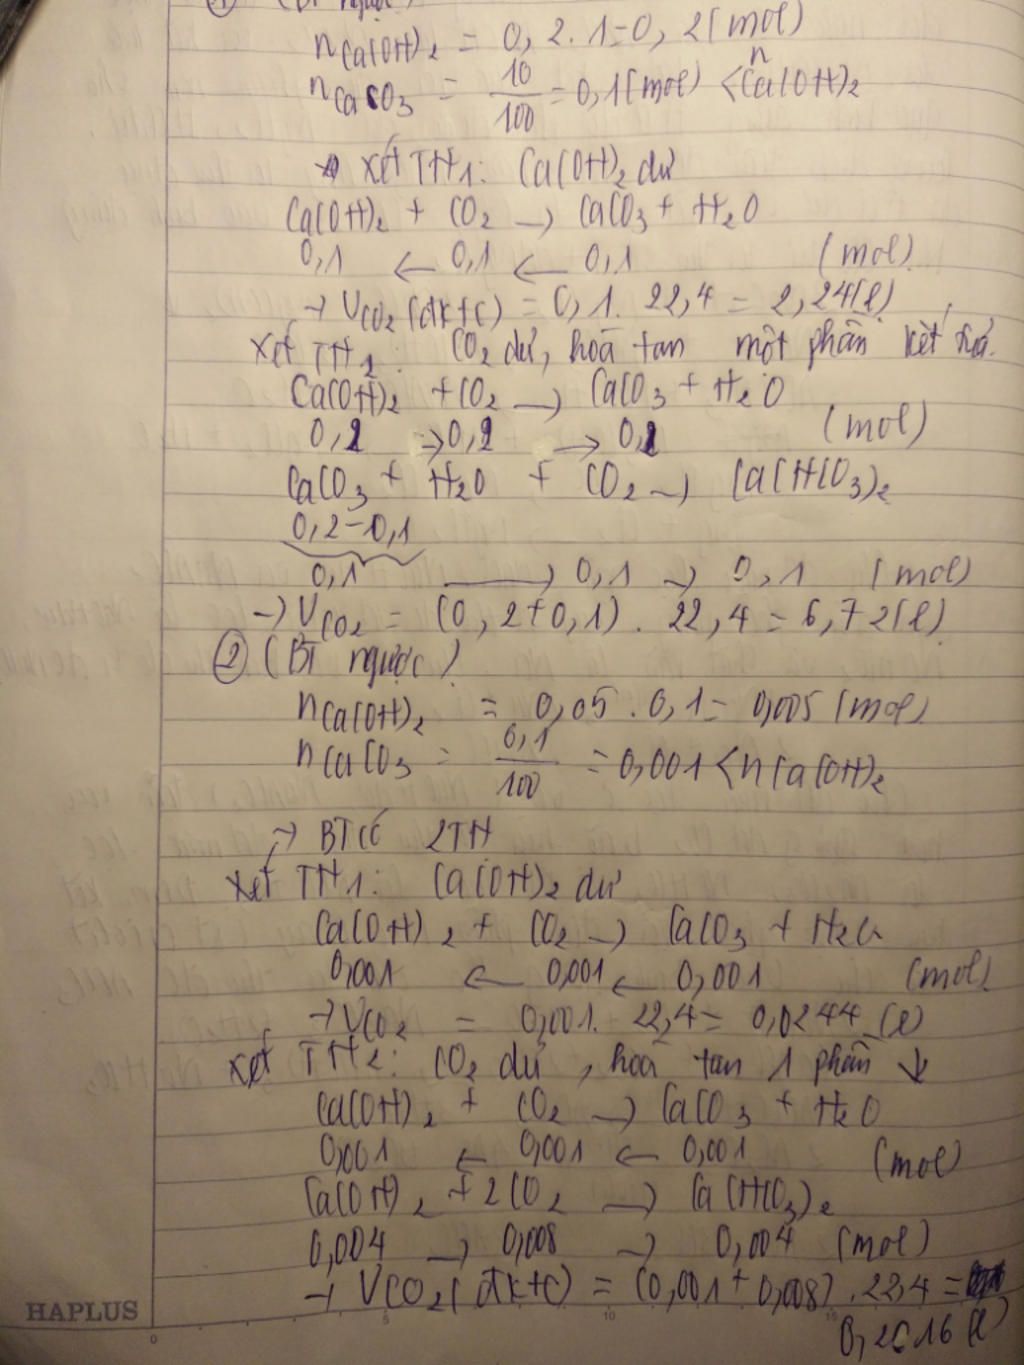 ① (BT ngược)
nCa(OH)₂ = 0,2.1=0,2(mol)
nCaCO₃ = 10/100 = 0,1(mol) < nCa(OH)₂
→ Xét TH1: Ca(OH)₂ dư
Ca(OH)₂ + CO₂ → CaCO₃ + H₂O
0,1 ← 0,1 ← 0,1 (mol)
→ VCO₂(đktc) = 0,1. 22,4 = 2,24(l)
Xét TH2: CO₂ dư, hoà tan một phần kết tủa.
Ca(OH)₂ + CO₂ → CaCO₃ + H₂O
0,2 → 0,2 → 0,2 (mol)
CaCO₃ + H₂O + CO₂ → Ca(HCO₃)₂
0,2-0,1
0,1 → 0,1 → 0,1 (mol)
→ VCO₂ = (0,2+0,1). 22,4 = 6,72(l)
② (BT ngược)
nCa(OH)₂ = 0,05.0,1= 0,005 (mol)
nCaCO₃ = 0,1/100 = 0,001 < nCa(OH)₂
→ BT có 2TH
Xét TH1: Ca(OH)₂ dư
Ca(OH)₂ + CO₂ → CaCO₃ + H₂O
0,001 ← 0,001 ← 0,001 (mol)
→ VCO₂ = 0,001. 22,4= 0,0244 (l)
Xét TH2: CO₂ dư, hoà tan 1 phần ↓
Ca(OH)₂ + CO₂ → CaCO₃ + H₂O
0,001 ← 0,001 ← 0,001 (mol)
Ca(OH)₂ + 2CO₂ → Ca(HCO₃)₂
0,004 → 0,008 → 0,004 (mol)
→ VCO₂(đktc) = (0,001+0,008).22,4 =
0,2016 (l)
HAPLUS
0 5 10 15